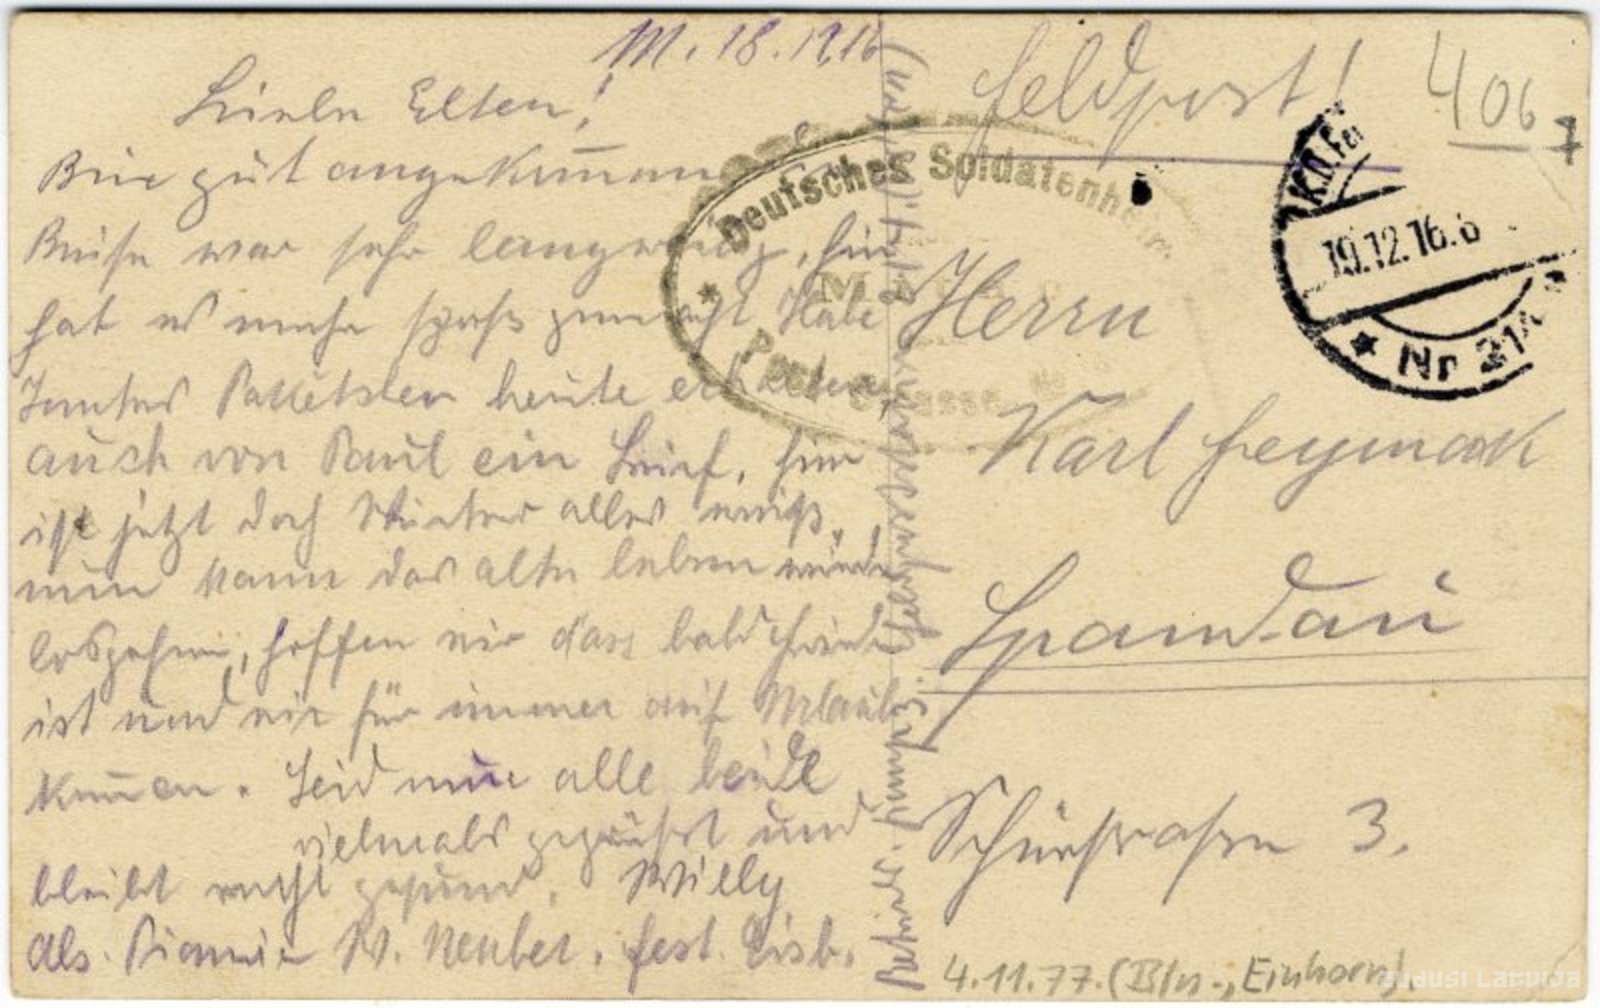 M. 18.12.16
Liebe Eltern!
Bin gut angekommen
Reise war sehr langweilig, hier
hat es mehr spaß gemacht Habe
Paketchen heute erhalten,
auch von Paul ein Brief, hier
ist jetzt doch Winter alles weiß,
nun kann das alte leben wieder
losgehen, hoffen wir dass bald Friede
ist und wir für immer auf Urlaub
kommen. Seid nun alle beide
vielmals gegrüßt und
bleibt recht gesund. Willy
Abs. Pionier W. Neubel. Fest. Eisb.
Feldpost!
406
7
Deutsches Soldatenheim
M
K.D.Fe
19.12.16.6
* Nr 214
Herrn
Karl
Spandau
3.
4.11.77. (Bln-, Einhorn)
ZUDUSI LATVIJA